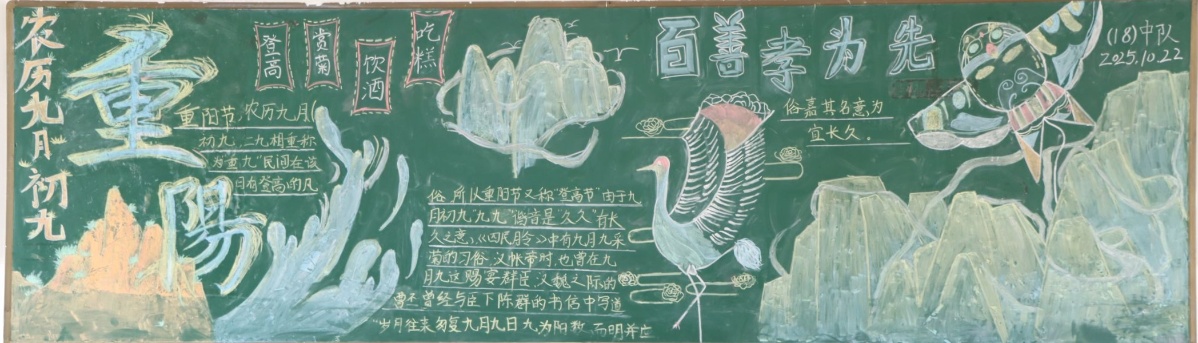 农历九月初九
重陽
登高
赏菊
饮酒
吃糕
重阳节,农历九月
初九,二九相重称
为“重九”民间在该
日有登高的风
俗,所以重阳节又称“登高节”由于九
月初九“九九”谐音是“久久”有长
久之意,《四民月令》中有九月九采
菊的习俗,汉帐帝时,也曾在九
月九这赐宴群臣,汉魏之际的
曹丕曾经与臣下陈群的书信中写道
“岁月往来匆复九月九日九为阳数,而明并应
百善孝为先
俗嘉其名意为
宜长久。
(18)中队
2025.10.22